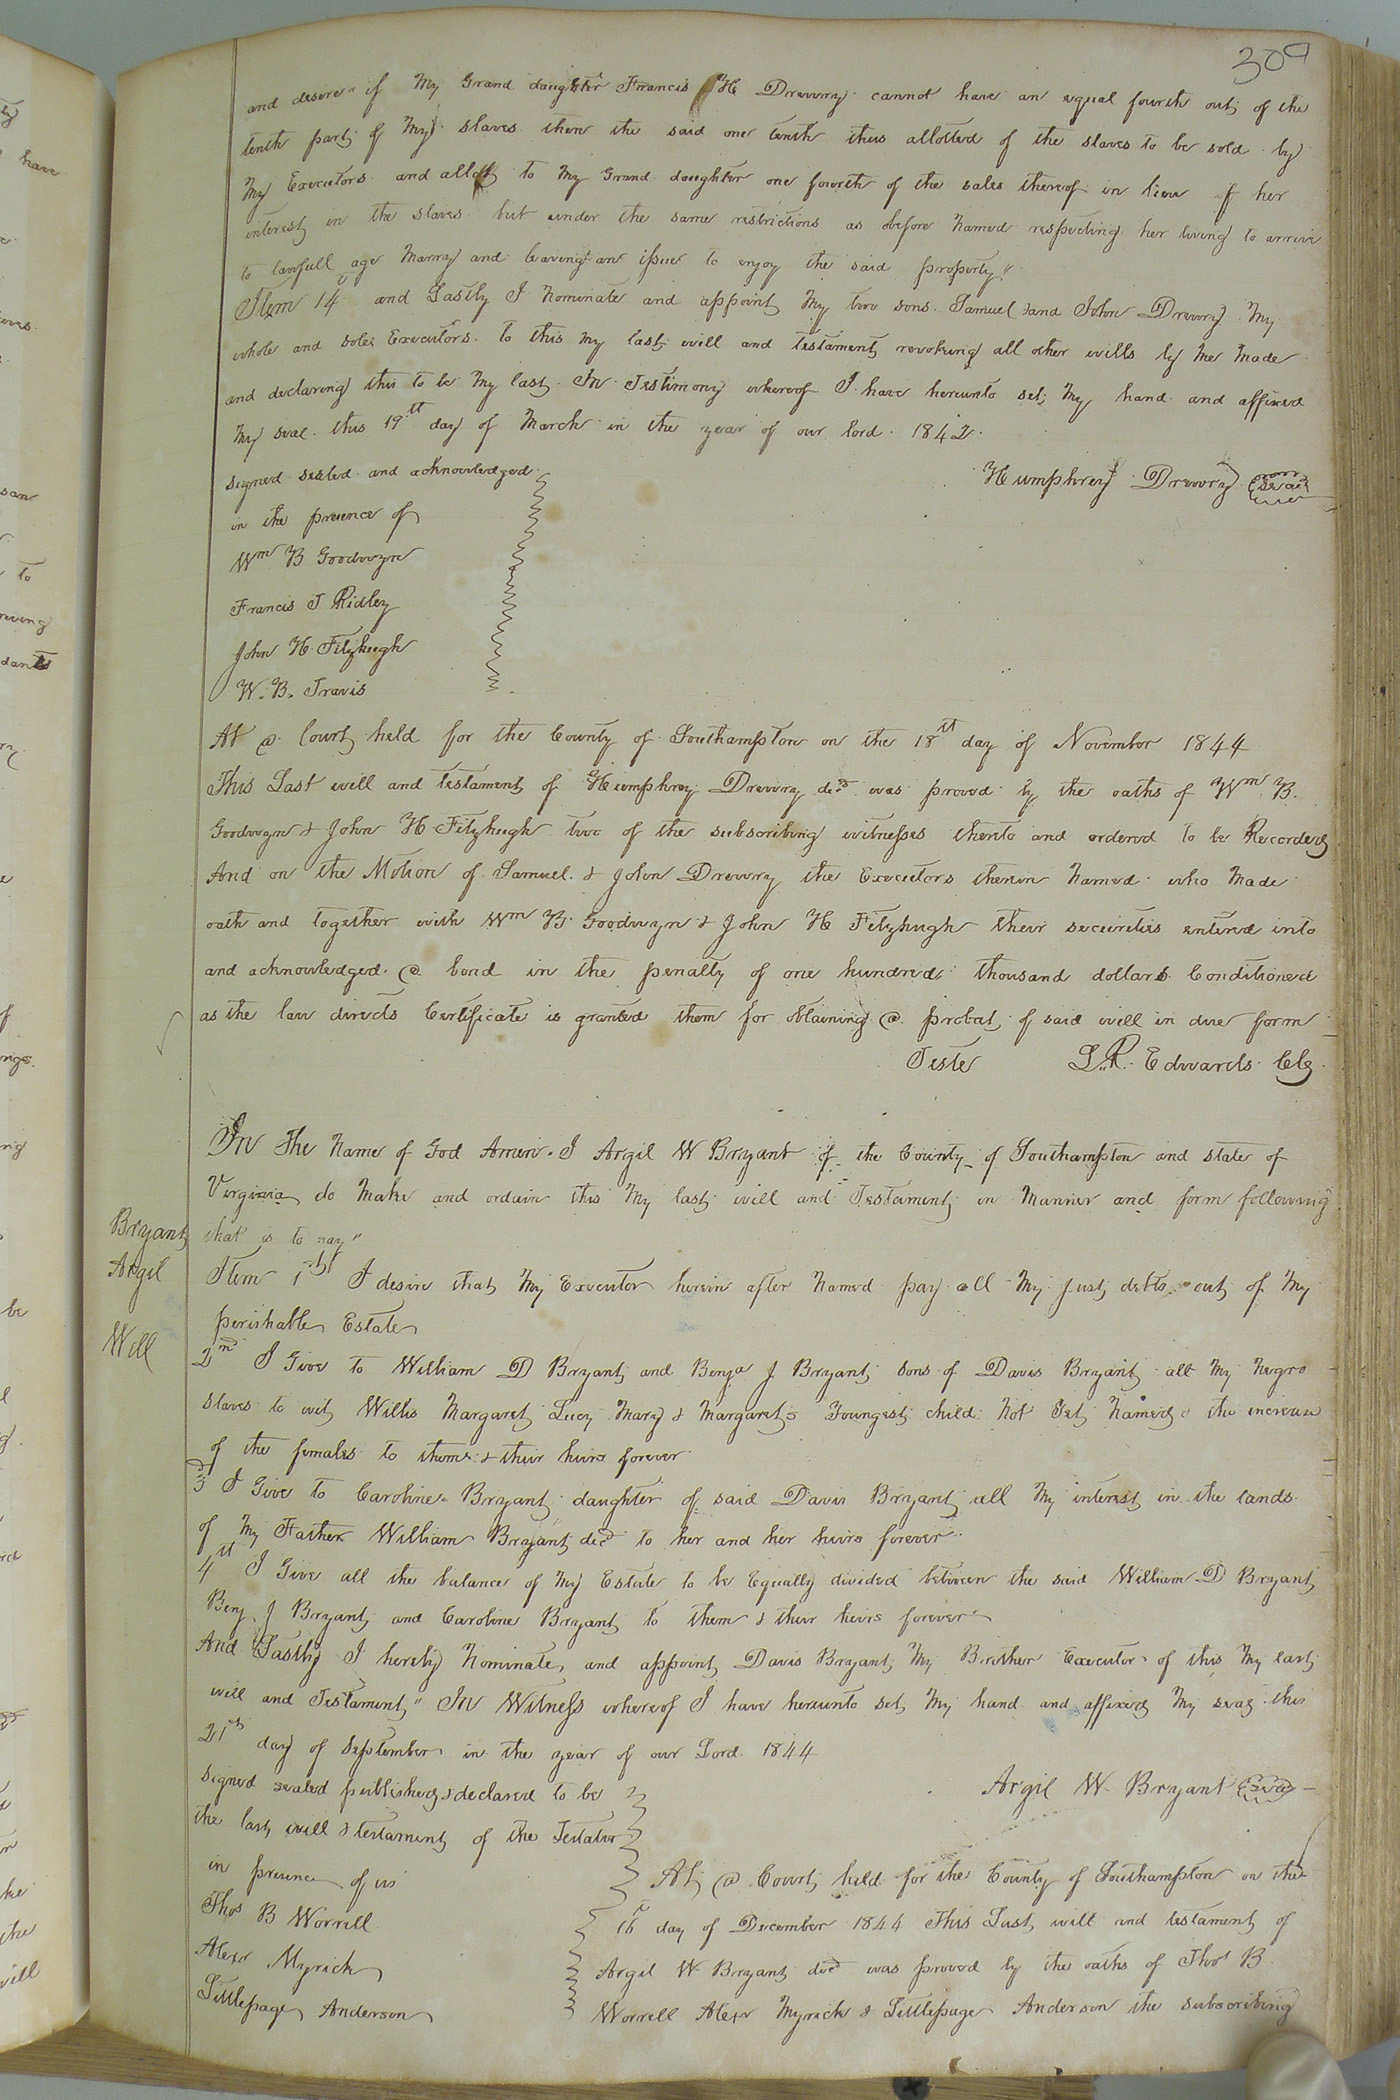 309
and desire if My Grand daughter Francis H Drewry cannot have an equal fourth out of the
tenth part of My slaves then the said one tenth thus allotted of the slaves to be sold by
My Executors and allott to My Grand daughter one fourth of the sales thereof in lieu of her
interest in the slaves but under the same restrictions as before Named respecting her living to arrive
to lawfull age Marry and leaving an issue to enjoy the said property"
Item 14 and Lastly I Nominate and appoint My two sons Samuel and John Drewry My
whole and sole Executors to this my last will and testament revoking all other wills by Me Made
and declaring this to be My last In Testimony whereof I have hereunto set My hand and affixed
My seal this 19th day of March in the year of our lord 1842.
Humphrey Drewry Seal
signed sealed and acknowledged
in the presence of
Wm B Goodwyn
Francis T Ridley
John H Fitzhugh
W. B. Travis
At a Court held for the County of Southampton on the 18th day of November 1844
This Last will and testament of Humphrey Drewry decd was proved by the oaths of Wm B.
Goodwyn & John H Fitzhugh two of the subscribing witnesses thereto and ordered to be Recorded
And on the Motion of Samuel & John Drewry the Executors therein Named who Made
oath and together with Wm B. Goodwyn & John H Fitzhugh their securities entered into
and acknowledged a bond in the penalty of one hundred thousand dollars Conditioned
as the law directs Certificate is granted them for obtaining a probat of said will in due form
Teste L. R. Edwards Clk
In The Name of God Amen. I Argil W Bryant of the County of Southampton and state of
Virginia do Make and ordain this My last will and Testament in Manner and form following
that is to say"
Bryant
Argil
Will
Item 1st I desire that My Executor herein after Named pay all My just debts out of My
perishable Estate
2nd I Give to William D Bryant and Benja J Bryant sons of Davis Bryant all My Negro
slaves to wit Willis Margaret Lucy Mary & Margarets Youngest child Not Yet Named & the increase
of the females to them & their heirs forever
3d I Give to Caroline Bryant daughter of said Davis Bryant all My interest in the lands
of My Father William Bryant decd to her and her heirs forever
4th I Give all the balance of My Estate to be Equally divided between the said William D Bryant
Benj J Bryant and Caroline Bryant to them & their heirs forever
And Lastly I hereby Nominate and appoint Davis Bryant My Brother Executor of this My last
will and Testament" In Witness whereof I have hereunto set My hand and affixed My seal this
21st day of September in the year of our Lord 1844
Argil W Bryant Seal
signed sealed published & declared to be
the last will & testament of the Testator
in presence of us
Thos B Worrell
Alexr Myrick
Littlepage Anderson
At a Court held for the County of Southampton on the
16 day of December 1844 This Last will and testament of
Argil W Bryant decd was proved by the oaths of Thos B
Worrell Alexr Myrick & Littlepage Anderson the subscribing